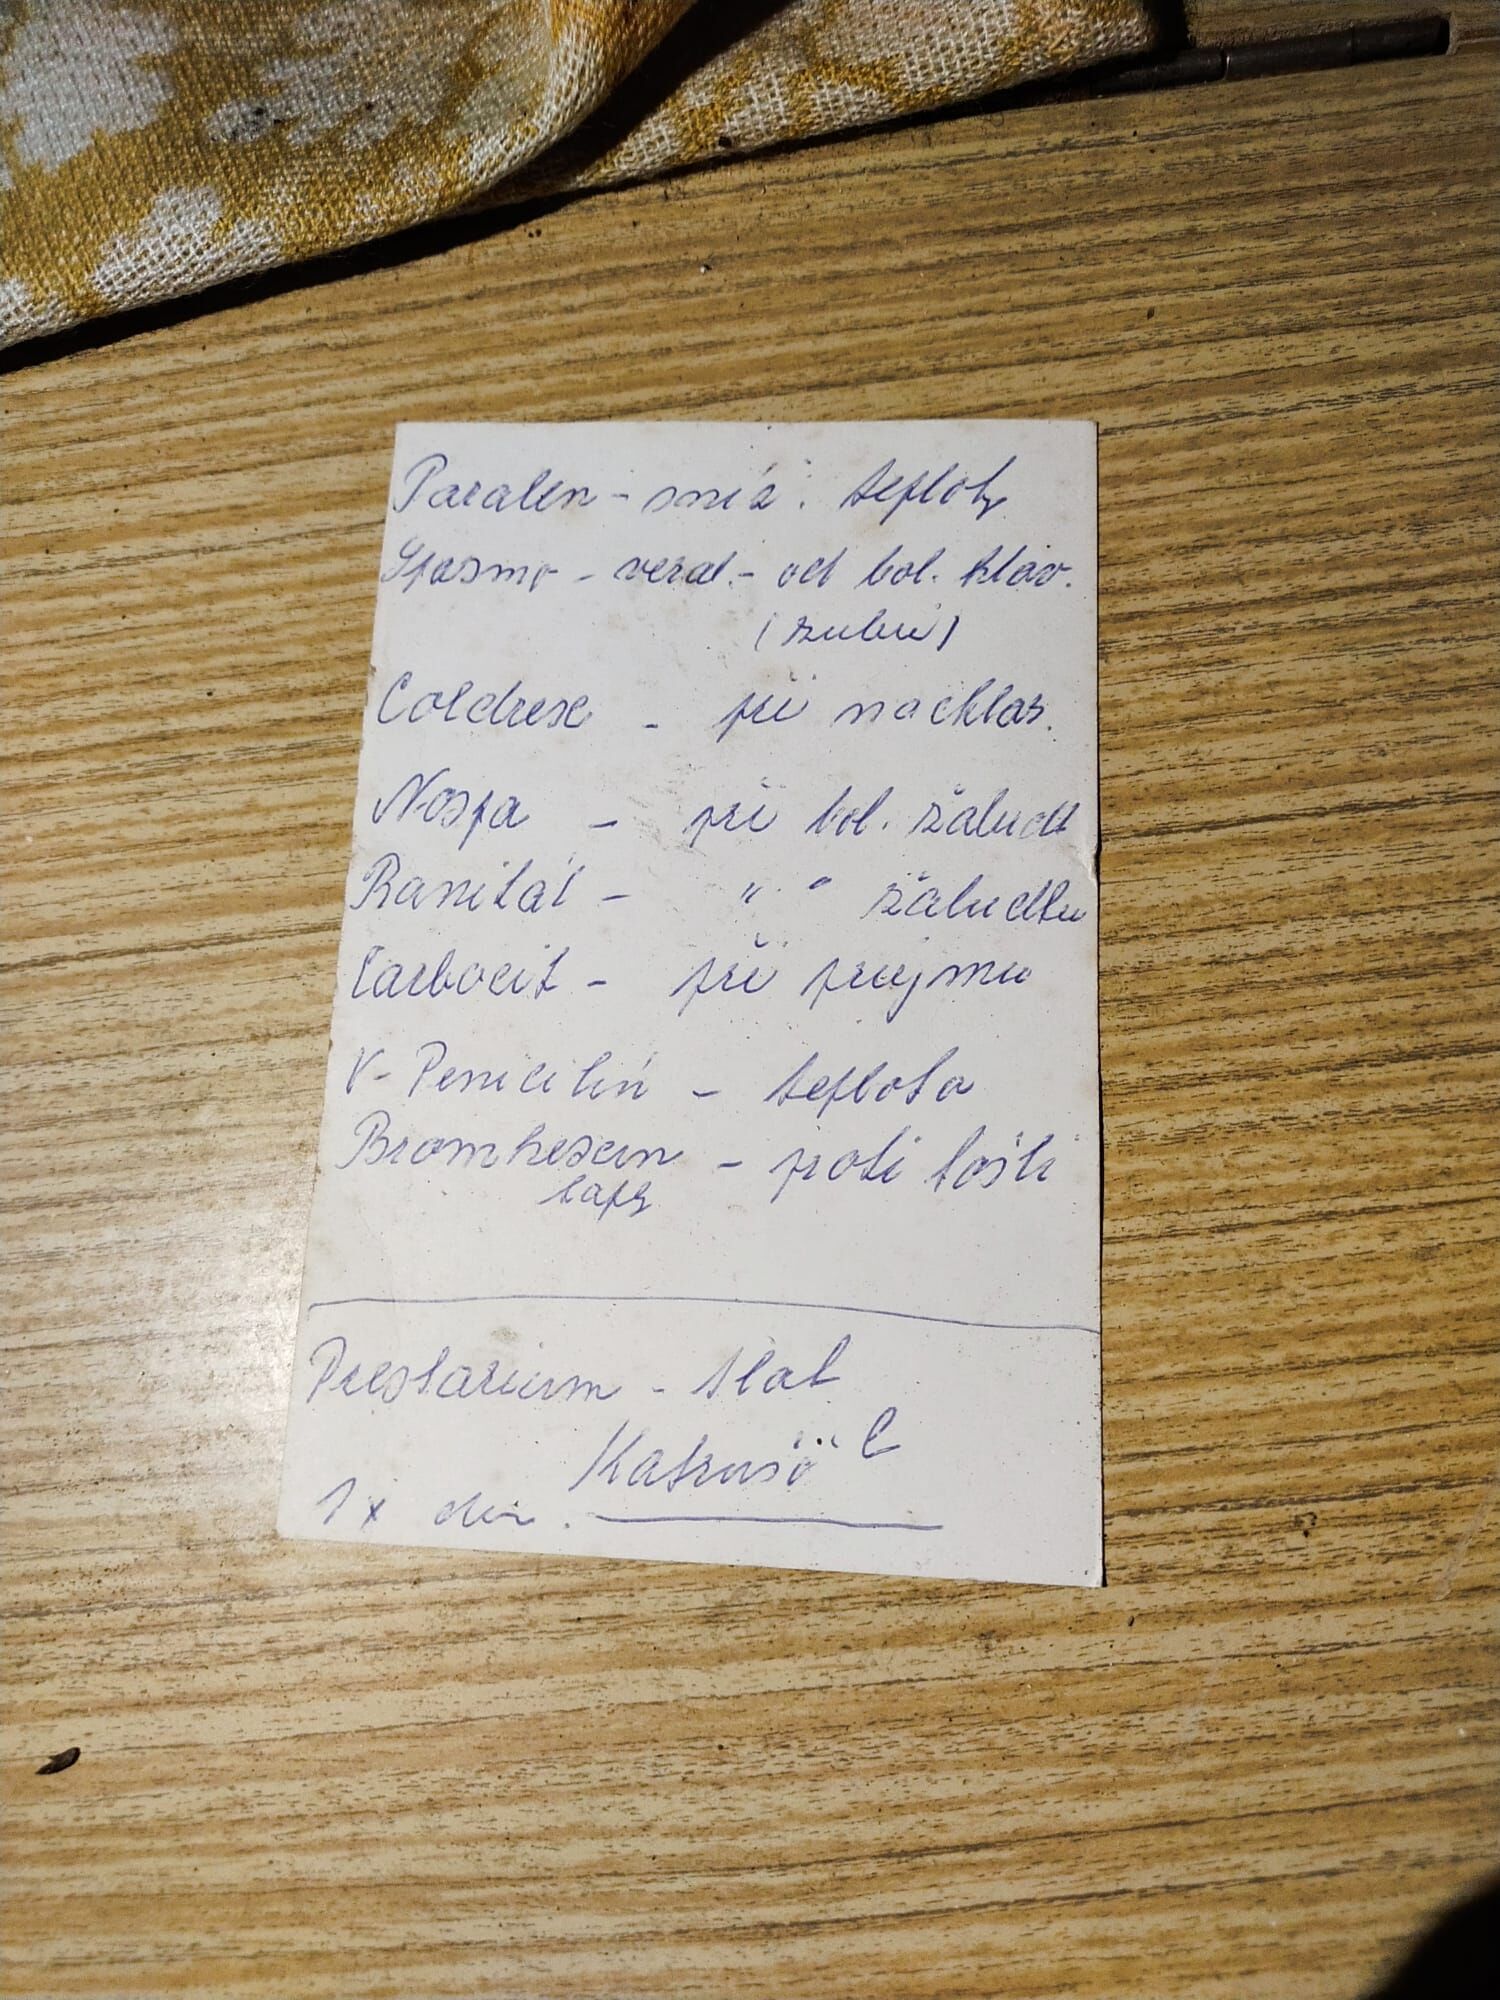 Paralen - sníž. teploty
Spasmo - veral. - od bol. hlav.
(zubů)
Coldrex - při nachlaz.
Nospa - při bol. žalud
Ranital - " " žaludku
Carbocit - při průjmu
V-Penicilin - teplota
Bromhexin - proti kašli
kapky
Prestarium - tlak
1x den.